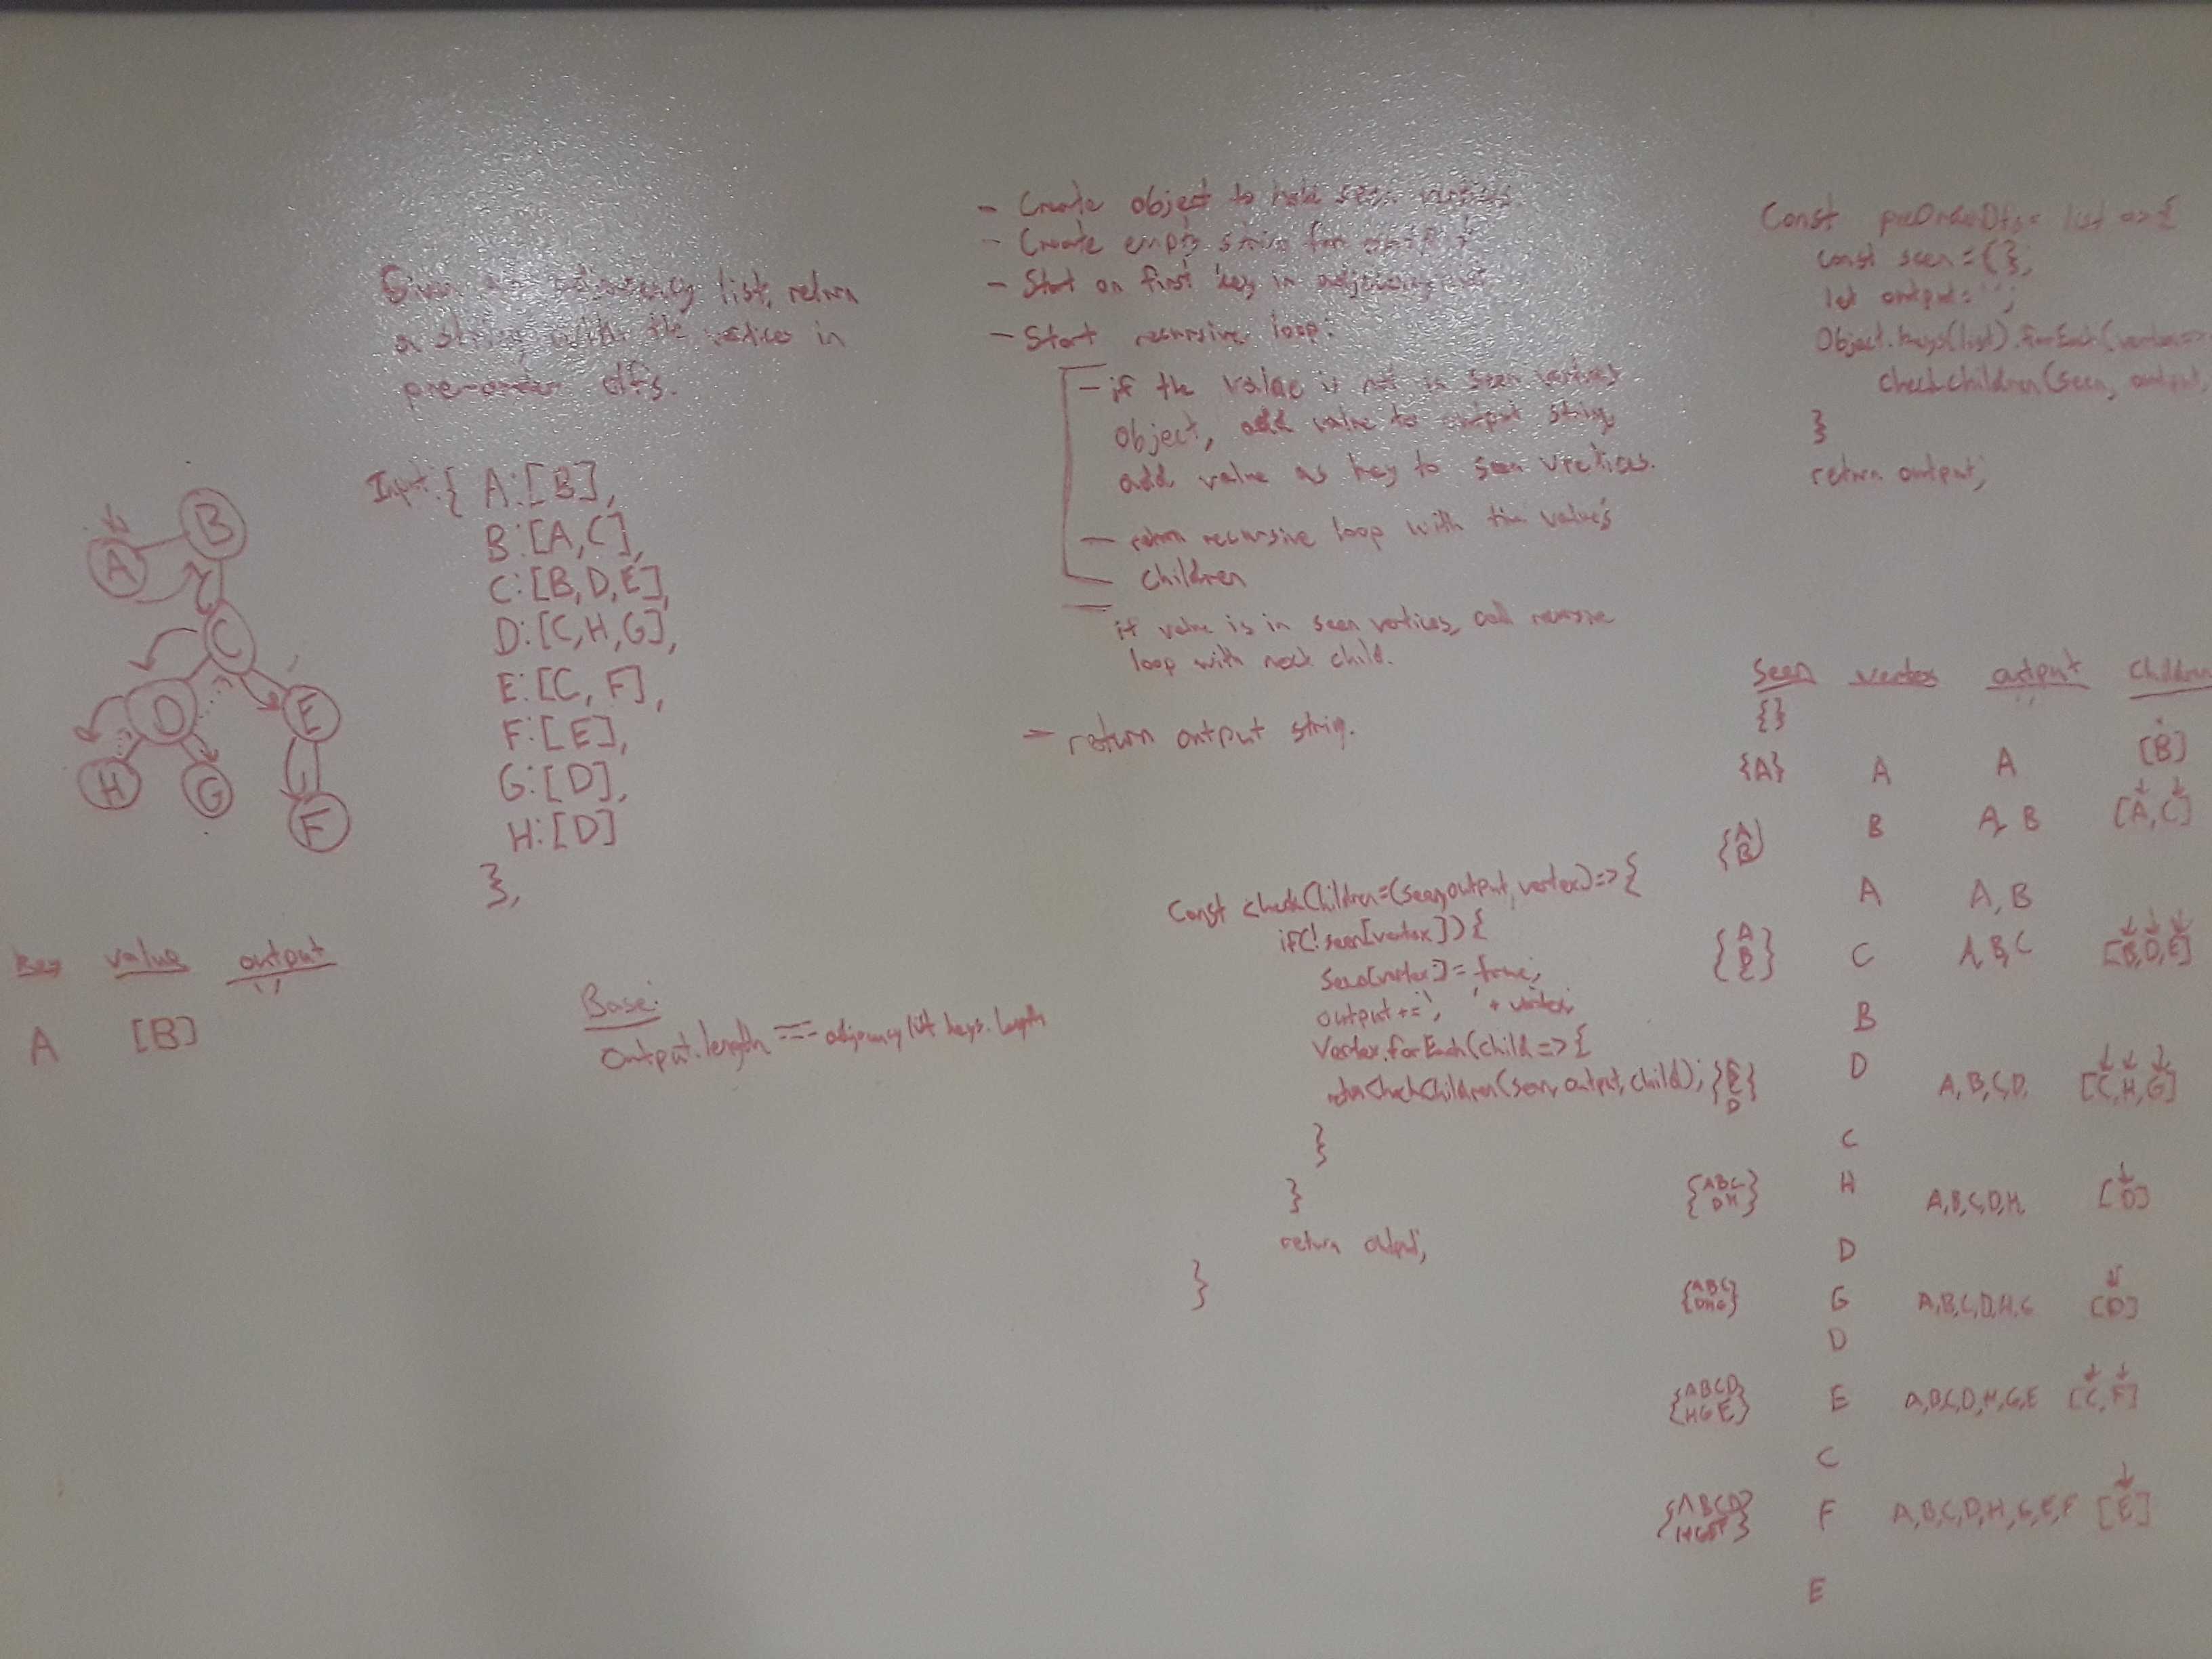 Given an adjacency list, return
a string with the vertices in
pre-order dfs.
A
B
C
D
E
H
G
F
Input: { A:[B],
B:[A,C],
C:[B,D,E],
D:[C,H,G],
E:[C, F],
F:[E],
G:[D],
H:[D]
},
Key value output
''
A [B]
Base:
output.length === adjacency list keys.length
- Create object to hold seen vertices.
- Create empty string for output
- Start on first key in adjacency list
- Start recursive loop:
- if the value is not in seen vertices
object, add value to output string,
add value as key to seen vertices.
- return recursive loop with the value's
children
if value is in seen vertices, call recursive
loop with next child.
- return output string.
Const checkChildren=(seen,output,vertex)=>{
if(!seen[vertex]){
seen[vertex]=true;
output+=', ' + vertex;
Vertex.forEach(child=>{
return checkChildren(seen, output, child);
}
}
return output;
}
Const preOrderDfs= list => {
const seen={};
let output='';
Object.keys(list).forEach(vertex=>
checkChildren(seen, output,
}
return output;
Seen vertex output Children
{} ''
{A} A A [B]
{A B} B A, B [A,C]
A A, B
{A B C} C A,B,C [B,D,E]
B
D A,B,C,D, [C,H,G]
C
{ABC DH} H A,B,C,D,H, [D]
D
{ABC DHG} G A,B,C,D,H,G [D]
D
{ABCD HGE} E A,B,C,D,H,G,E [C,F]
C
{ABCD HGEF} F A,B,C,D,H,G,E,F [E]
E